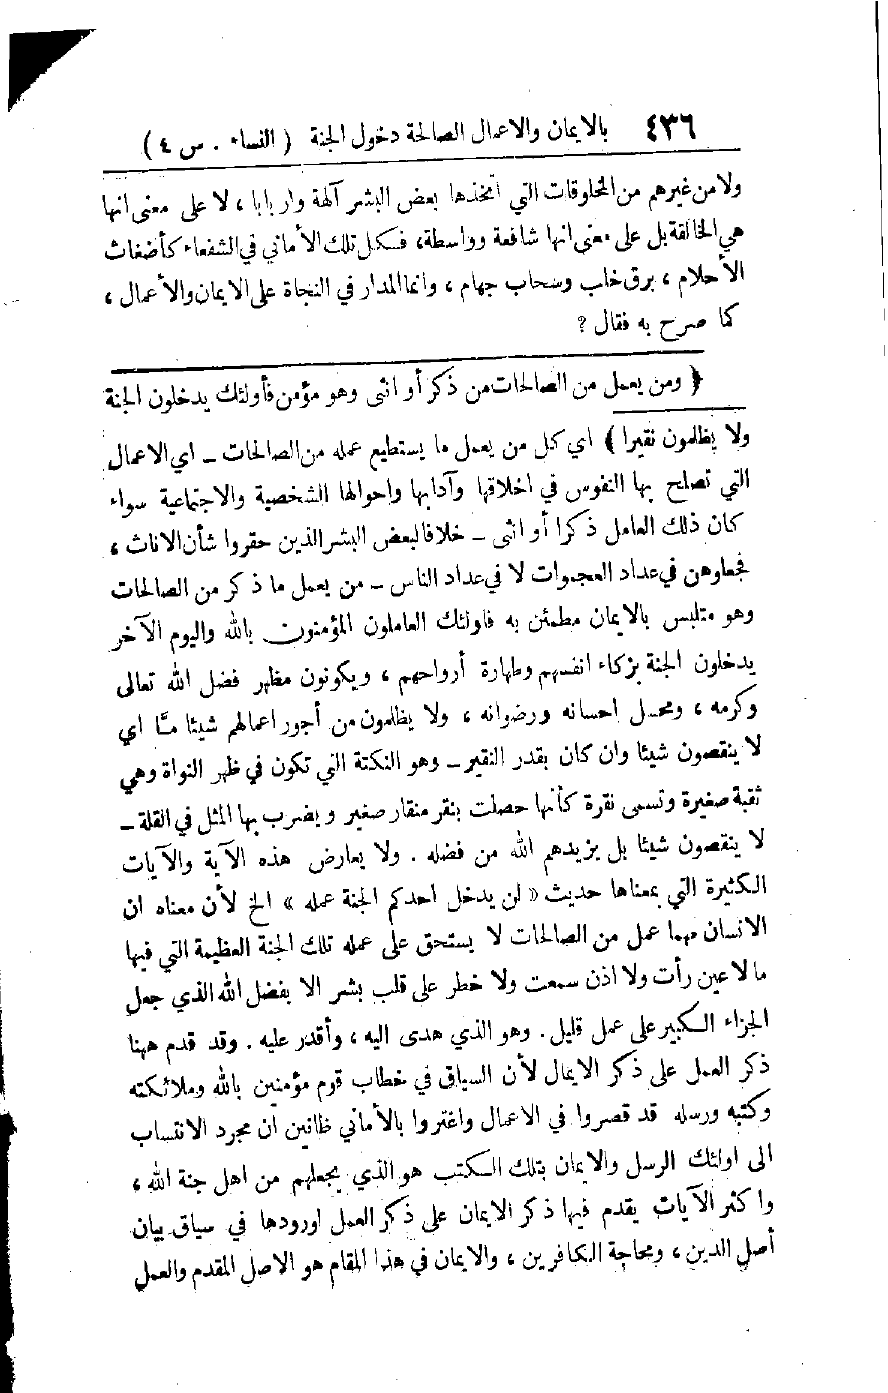 ٤٣٦ بالايمان والاعمال الصالحة دخول الجنة ( النساء . س ٤ )
ولا من غيرهم من المخلوقات التي اتخذها بعض البشر آلهة واربابا ، لا على معنى انها
هي الخالقة بل على معنى انها شافعة وواسطة، فكل تلك الأماني في الشفعاء كأضغاث
الأحلام ، برق خلب وسحاب جهام ، وانما المدار في النجاة على الايمان والأعمال ،
كما صرح به فقال ?
﴿ ومن يعمل من الصالحات من ذكر أو انثى وهو مؤمن فأولئك يدخلون الجنة
ولا يظلمون نقيرا ﴾ اي كل من يعمل ما يستطيع عمله من الصالحات ـ اي الاعمال
التي تصلح بها النفوس في اخلاقها وآدابها واحوالها الشخصية والاجتماعية سواء
كان ذلك العامل ذكرا أو انثى ـ خلافا لبعض البشر الذين حقروا شأن الاناث ،
فجعلوهن في عداد العجماوات لا في عداد الناس ـ من يعمل ما ذكر من الصالحات
وهو متلبس بالايمان مطمئن به فاولئك العاملون المؤمنون بالله واليوم الآخر
يدخلون الجنة بزكاء انفسهم وطهارة أرواحهم ، ويكونون مظهر فضل الله تعالى
وكرمه ، ومحل احسانه ورضوانه ، ولا يظلمون من أجور اعمالهم شيئا مّا اي
لا ينقصون شيئا وان كان بقدر النقير ـ وهو النكتة التي تكون في ظهر النواة وهي
ثقبة صغيرة وتسمى نقرة كأنها حصلت بنقر منقار صغير ويضرب بها المثل في القلة ـ
لا ينقصون شيئا بل يزيدهم الله من فضله . ولا يعارض هذه الآية والآيات
الكثيرة التي بمعناها حديث « لن يدخل احدكم الجنة عمله » الخ لأن معناه ان
الانسان مهما عمل من الصالحات لا يستحق على عمله تلك الجنة العظيمة التي فيها
ما لا عين رأت ولا اذن سمعت ولا خطر على قلب بشر الا بفضل الله الذي جعل
الجزاء الكبير على عمل قليل . وهو الذي هدى اليه ، وأقدر عليه . وقد قدم ههنا
ذكر العمل على ذكر الايمان لأن السياق في خطاب قوم مؤمنين بالله وملائكته
وكتبه ورسله قد قصروا في الاعمال واغتروا بالأماني ظانين ان مجرد الانتساب
الى اولئك الرسل والايمان بتلك الكتب هو الذي يجعلهم من اهل جنة الله ،
واكثر الآيات يقدم فيها ذكر الايمان على ذكر العمل لورودها في سياق بيان
أصل الدين ، ومحاجة الكافرين ، والايمان في هذا المقام هو الاصل المقدم والعمل